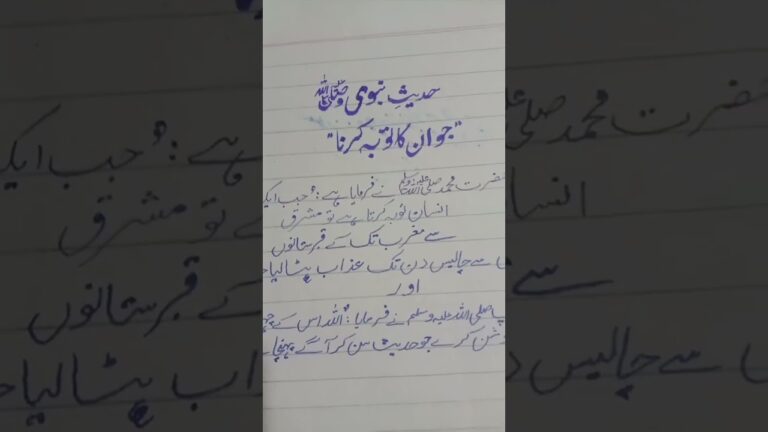 حدیثِ نبوی ﷺ
"جوان کا توبہ کرنا"
حضرت محمد ﷺ نے فرمایا ہے: "جب ایک
انسان توبہ کرتا ہے تو مشرق
سے مغرب تک کے قبرستانوں
سے چالیس دن تک عذاب ہٹا لیا
اور
صلی اللہ علیہ وسلم نے فرمایا: "اللہ اس کے
کرے جو حدیث سن کر آگے پہنچا